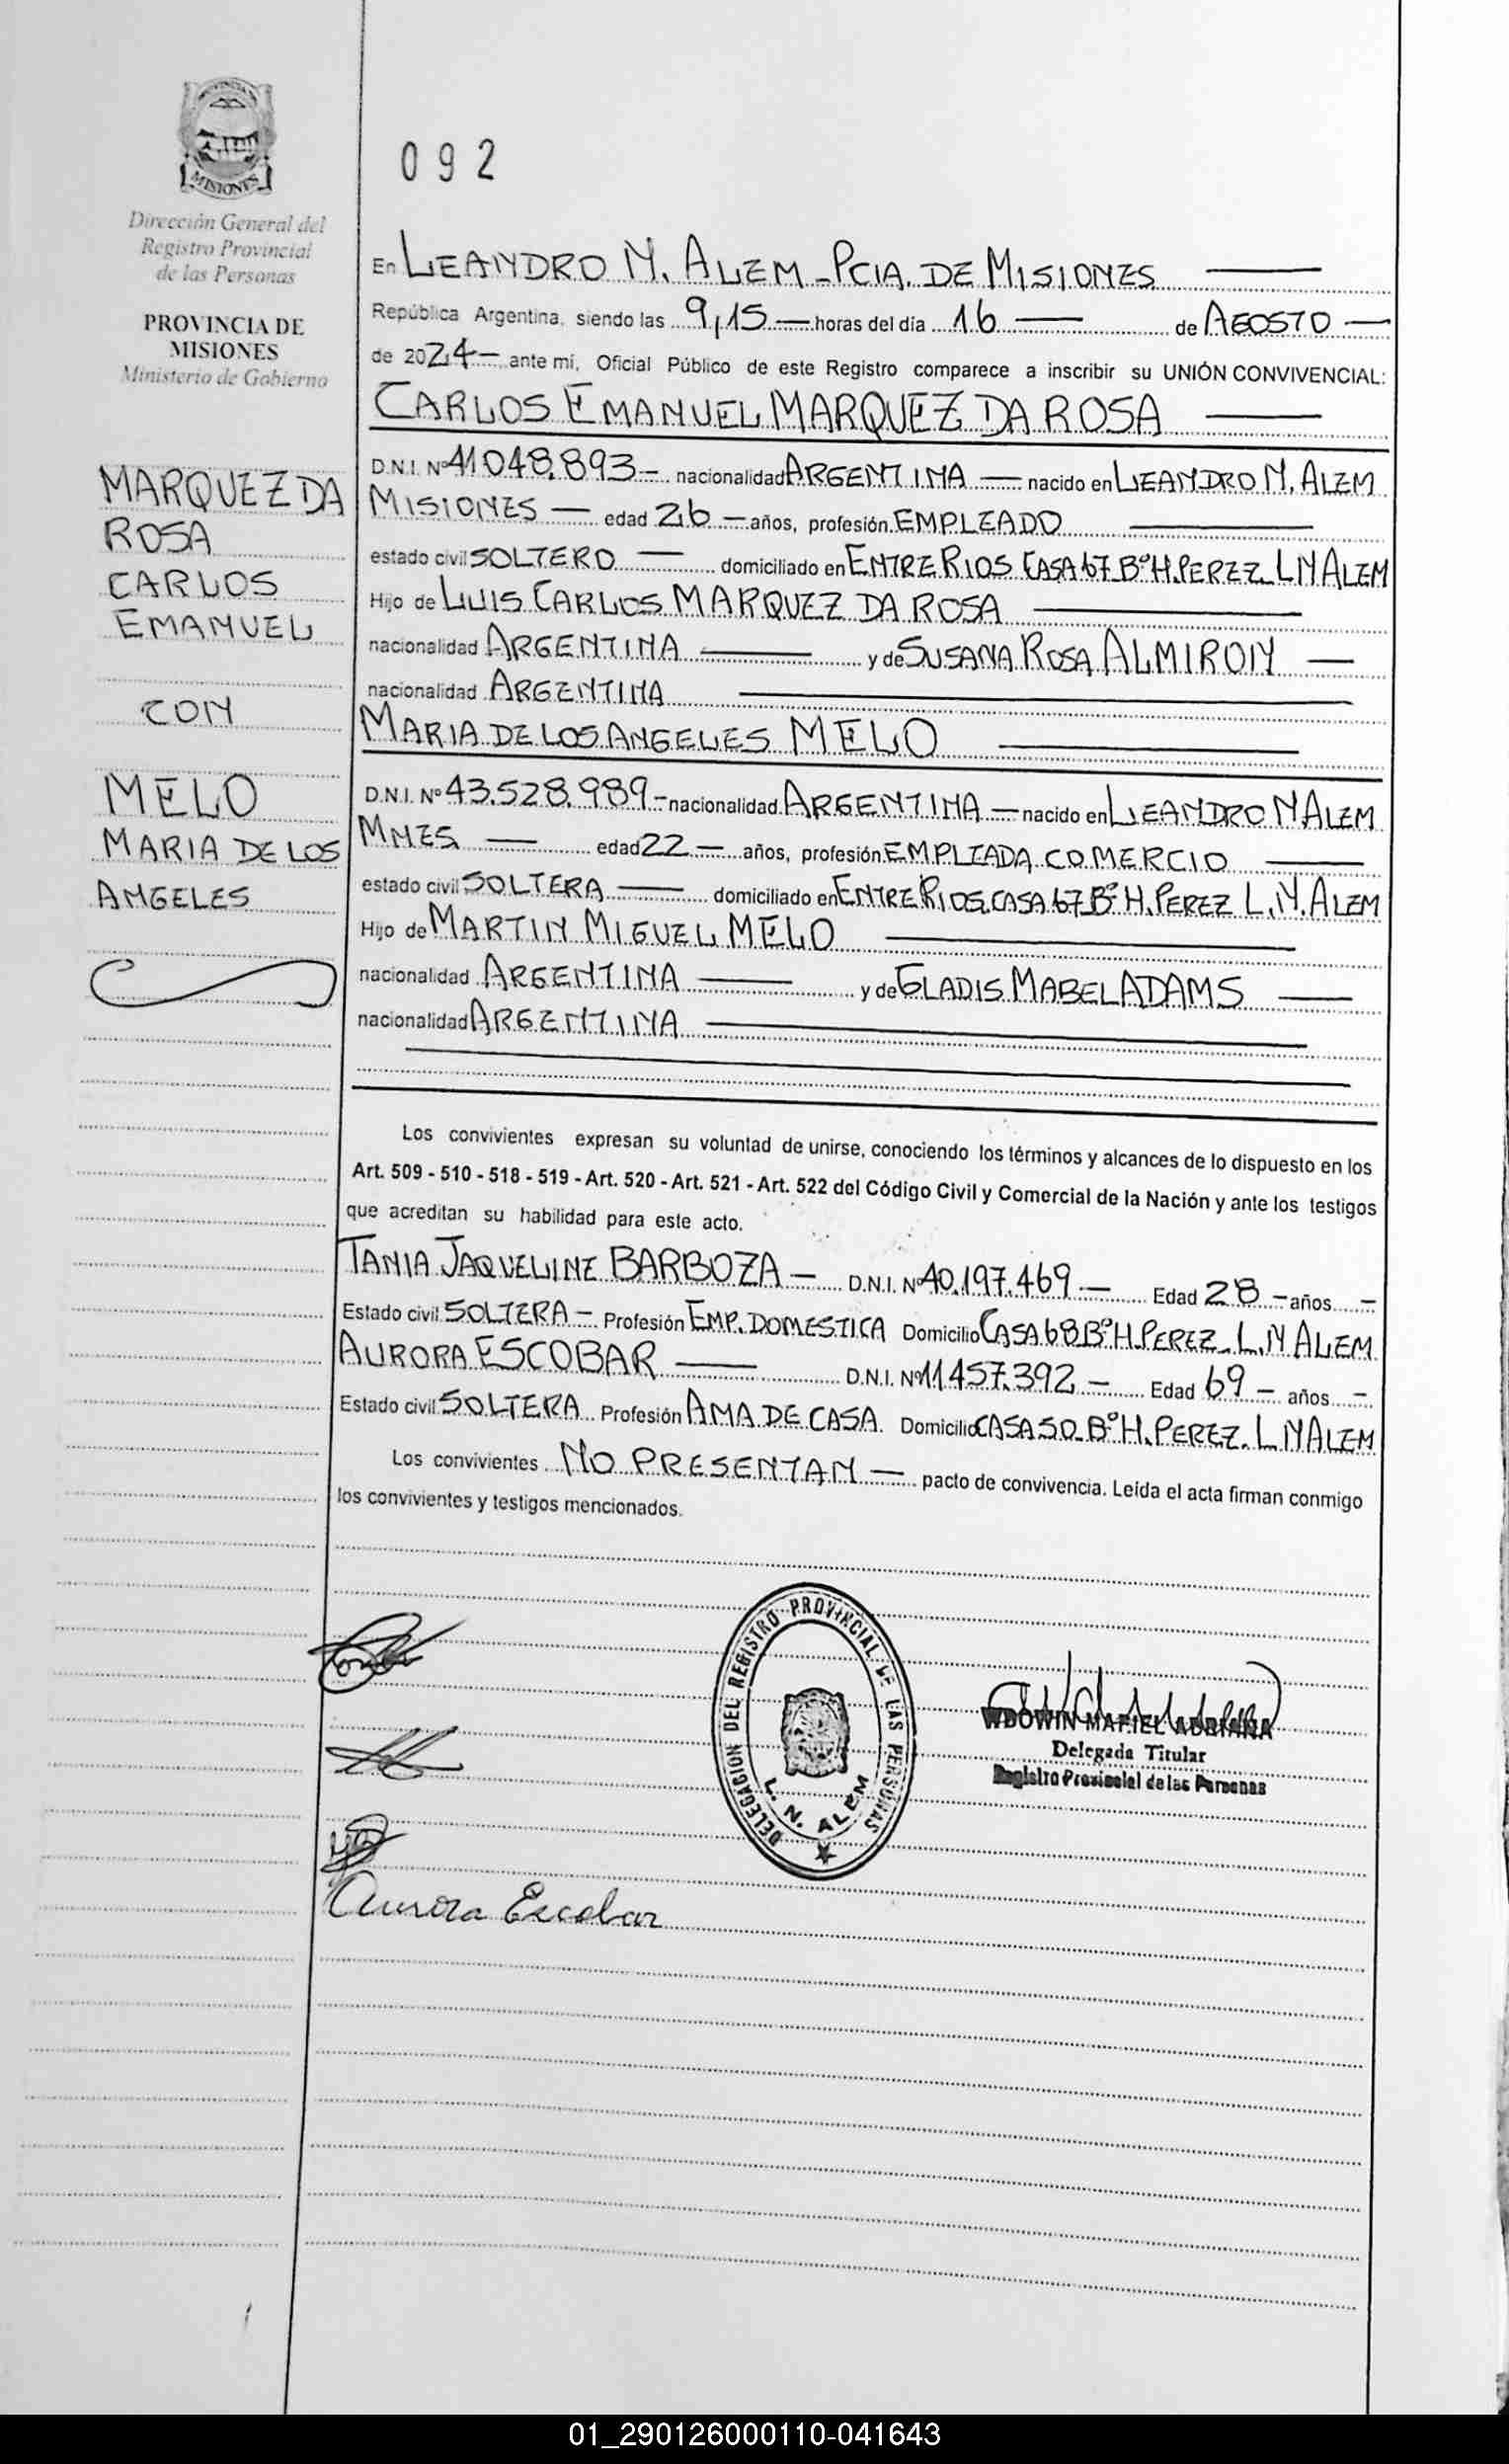 PROVINCIA DE
MISIONES
Dirección General del
Registro Provincial
de las Personas
PROVINCIA DE
MISIONES
Ministerio de Gobierno
MARQUEZ DA
ROSA
CARLOS
EMANUEL
CON
MELO
MARIA DE LOS
ANGELES
092
En LEANDRO N. ALEM - PCIA. DE MISIONES
República Argentina, siendo las 9,15 — horas del día 16 — de AGOSTO —
de 2024 - ante mí, Oficial Público de este Registro comparece a inscribir su UNIÓN CONVIVENCIAL:
CARLOS EMANUEL MARQUEZ DA ROSA
D.N.I. Nº 41.048.893 - nacionalidad ARGENTINA — nacido en LEANDRO N. ALEM
MISIONES — edad 26 - años, profesión EMPLEADO
estado civil SOLTERO — domiciliado en ENTRE RIOS CASA 67 Bº H. PEREZ L N ALEM
Hijo de LUIS CARLOS MARQUEZ DA ROSA
nacionalidad ARGENTINA — y de SUSANA ROSA ALMIRON —
nacionalidad ARGENTINA
MARIA DE LOS ANGELES MELO
D.N.I. Nº 43.528.989 - nacionalidad ARGENTINA — nacido en LEANDRO N ALEM
MNES — edad 22 - años, profesión EMPLEADA COMERCIO
estado civil SOLTERA — domiciliado en ENTRE RIOS CASA 67 Bº H. PEREZ L. N. ALEM
Hijo de MARTIN MIGUEL MELO
nacionalidad ARGENTINA — y de GLADIS MABEL ADAMS —
nacionalidad ARGENTINA
Los convivientes expresan su voluntad de unirse, conociendo los términos y alcances de lo dispuesto en los
Art. 509 - 510 - 518 - 519 - Art. 520 - Art. 521 - Art. 522 del Código Civil y Comercial de la Nación y ante los testigos
que acreditan su habilidad para este acto.
TANIA JAQUELINE BARBOZA — D.N.I. Nº 40.197.469 — Edad 28 - años -
Estado civil SOLTERA - Profesión EMP. DOMESTICA Domicilio CASA 68 Bº H. PEREZ - L. N ALEM
AURORA ESCOBAR — D.N.I. Nº 11.457.392 - Edad 69 - años -
Estado civil SOLTERA Profesión AMA DE CASA Domicilio CASA 50 Bº H. PEREZ. L N ALEM
Los convivientes NO PRESENTAN — pacto de convivencia. Leída el acta firman conmigo
los convivientes y testigos mencionados.
DELEGACION DEL REGISTRO PROVINCIAL DE LAS PERSONAS
L. N. ALEM
WDOWIN MARIEL ADRIANA
Delegada Titular
Registro Provincial de las Personas
Aurora Escobar
01_290126000110-041643